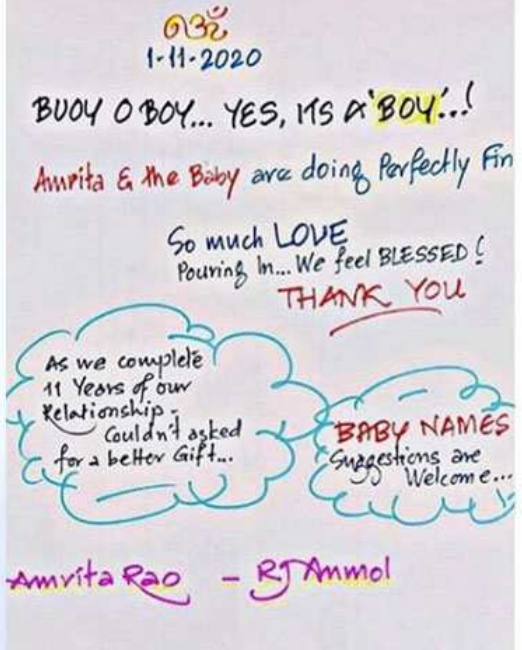 ॐ
1-11-2020
BUOY O BOY... YES, ITS A 'BOY'..!
Amrita & the Baby are doing Perfectly Fin
So much LOVE
Pouring In... We feel BLESSED !
THANK YOU
As we complete
11 Years of our
Relationship -
Couldn't asked
for a better Gift...
BABY NAMES
Suggestions are
Welcome...
Amrita Rao - RJ Anmol